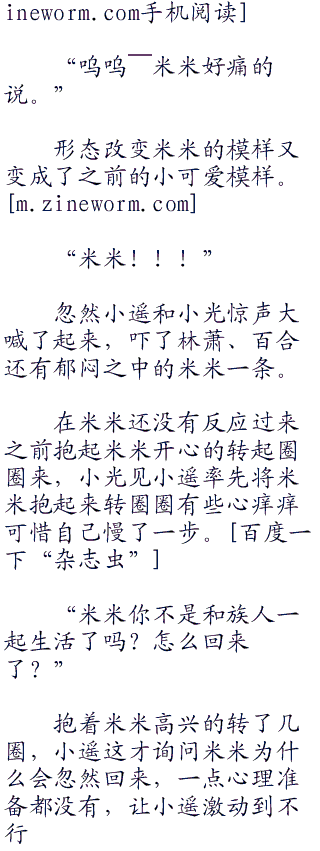 ineworm.com手机阅读]
“呜呜￣米米好痛的
说。”
形态改变米米的模样又
变成了之前的小可爱模样。
[m.zineworm.com]
“米米！！！”
忽然小遥和小光惊声大
喊了起来，吓了林萧、百合
还有郁闷之中的米米一条。
在米米还没有反应过来
之前抱起米米开心的转起圈
圈来，小光见小遥率先将米
米抱起来转圈圈有些心痒痒
可惜自己慢了一步。[百度一
下“杂志虫”]
“米米你不是和族人一
起生活了吗？怎么回来
了？”
抱着米米高兴的转了几
圈，小遥这才询问米米为什
么会忽然回来，一点心理准
备都没有，让小遥激动到不
行